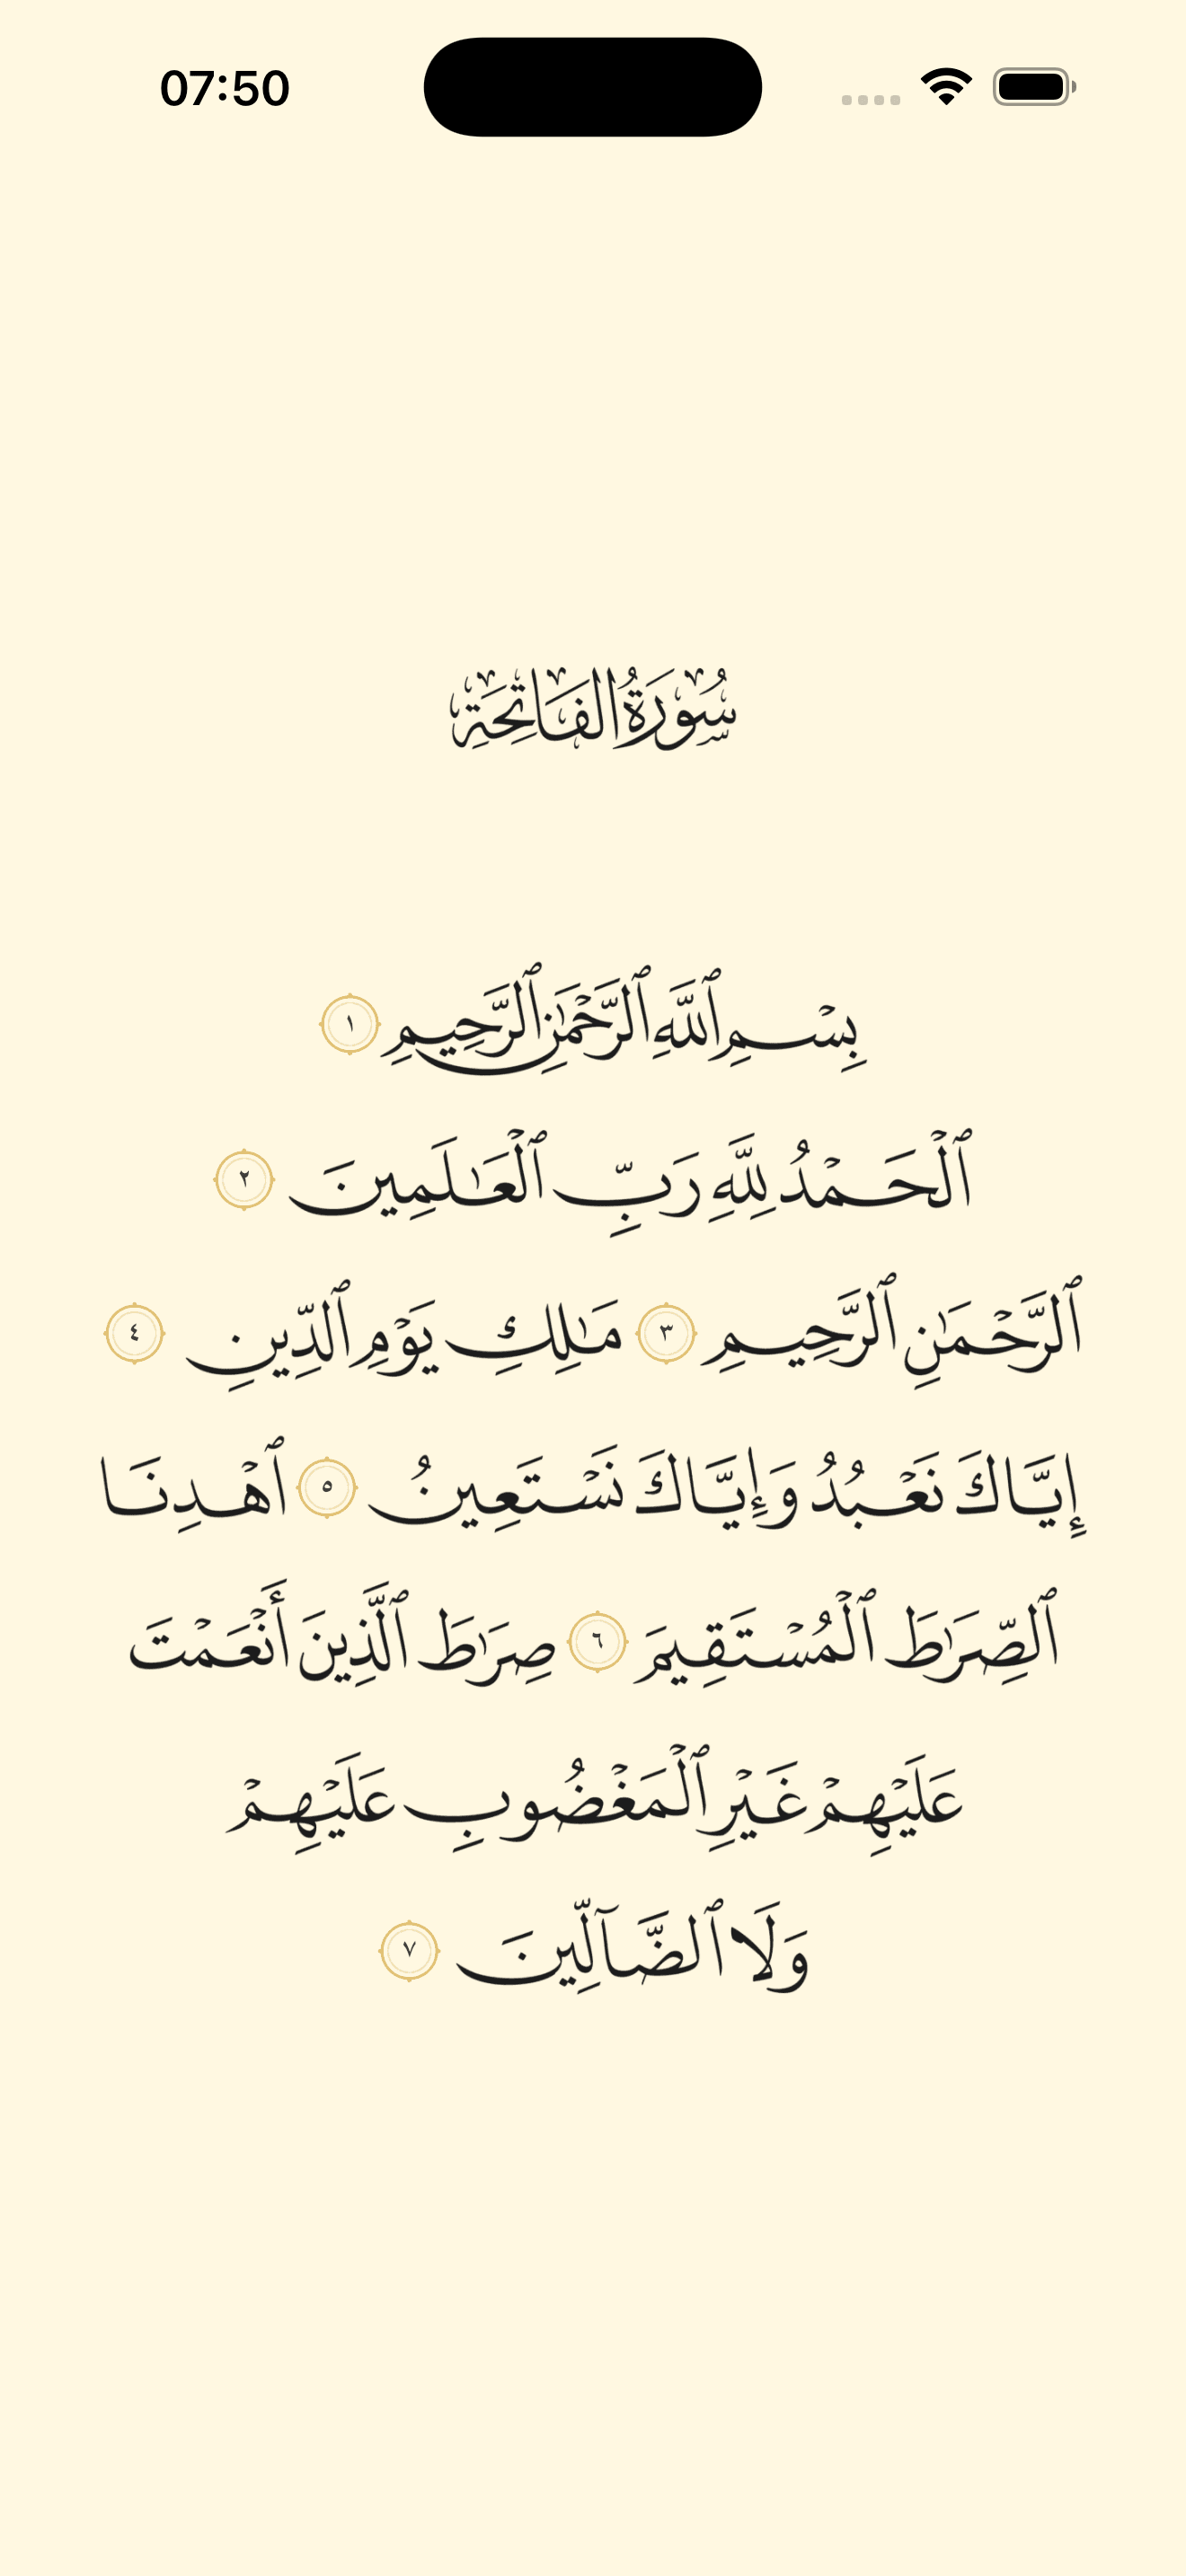 07:50
سُورَةُ الفَاتِحَةِ
بِسْمِ ٱللَّهِ ٱلرَّحْمَٰنِ ٱلرَّحِيمِ ١
ٱلْحَمْدُ لِلَّهِ رَبِّ ٱلْعَٰلَمِينَ ٢
ٱلرَّحْمَٰنِ ٱلرَّحِيمِ ٣ مَٰلِكِ يَوْمِ ٱلدِّينِ ٤
إِيَّاكَ نَعْبُدُ وَإِيَّاكَ نَسْتَعِينُ ٥ ٱهْدِنَا
ٱلصِّرَٰطَ ٱلْمُسْتَقِيمَ ٦ صِرَٰطَ ٱلَّذِينَ أَنْعَمْتَ
عَلَيْهِمْ غَيْرِ ٱلْمَغْضُوبِ عَلَيْهِمْ
وَلَا ٱلضَّآلِّينَ ٧